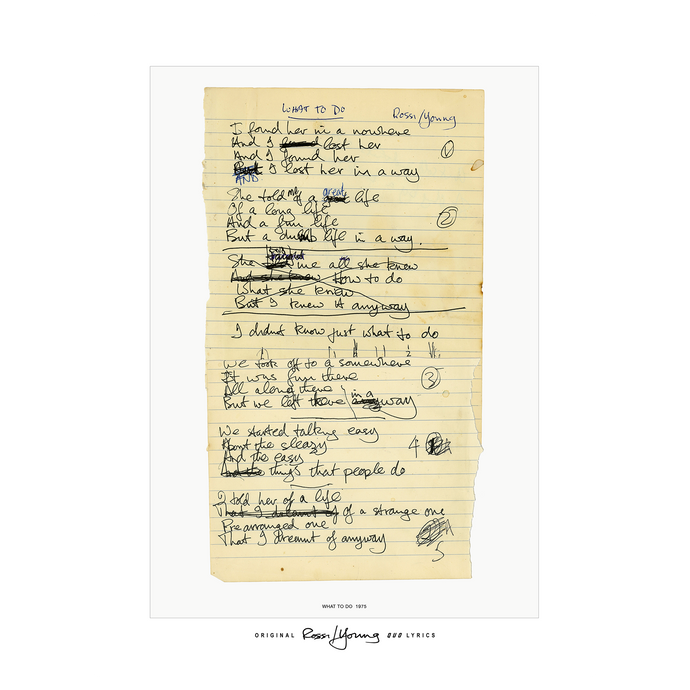 WHAT TO DO
Rossi/Young
I found her in a nowhere
And I found lost her
And I found her
But I lost her in a way
AND
1
She told me of a great life
Of a long life
And a fun life
But a dumb life in a way.
2
She me all she knew
And she knew how to do
What she knew
But I knew it anyway
I didnt know just what to do
We took off to a somewhere
It was fun there
All along there
But we left there in a way
3
We started talking easy
About the sleazy
And the easy
And the things that people do
4
I told her of a life
That I dreamt of of a strange one
Prearranged one
That I dreamt of anyway
5
WHAT TO DO 1975
ORIGINAL Rossi/Young QUO LYRICS